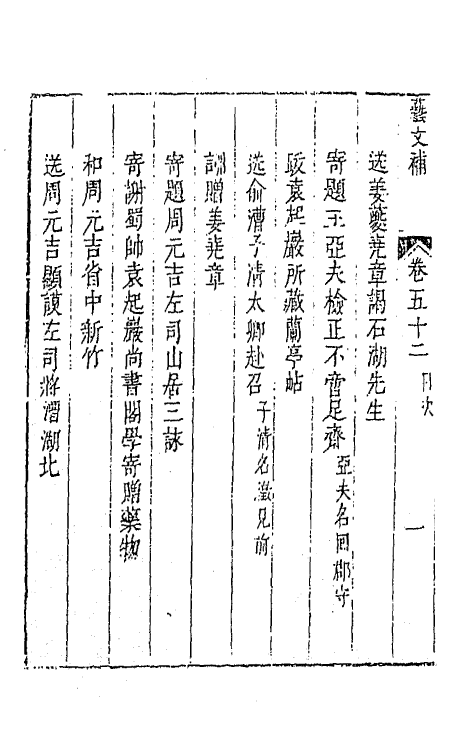 藝文補
卷五十二 目次
一
送姜夔堯章謁石湖先生
寄題王亞夫檢正不啻足齋 亞夫名回郡守
跋袁起巖所藏蘭亭帖
送俞漕子清太卿赴召 子清名澂見前
詶贈姜堯章
寄題周元吉左司山居三詠
寄謝蜀帥袁起巖尚書閣學寄贈藥物
和周元吉省中新竹
送周元吉顯謨左司將漕湖北